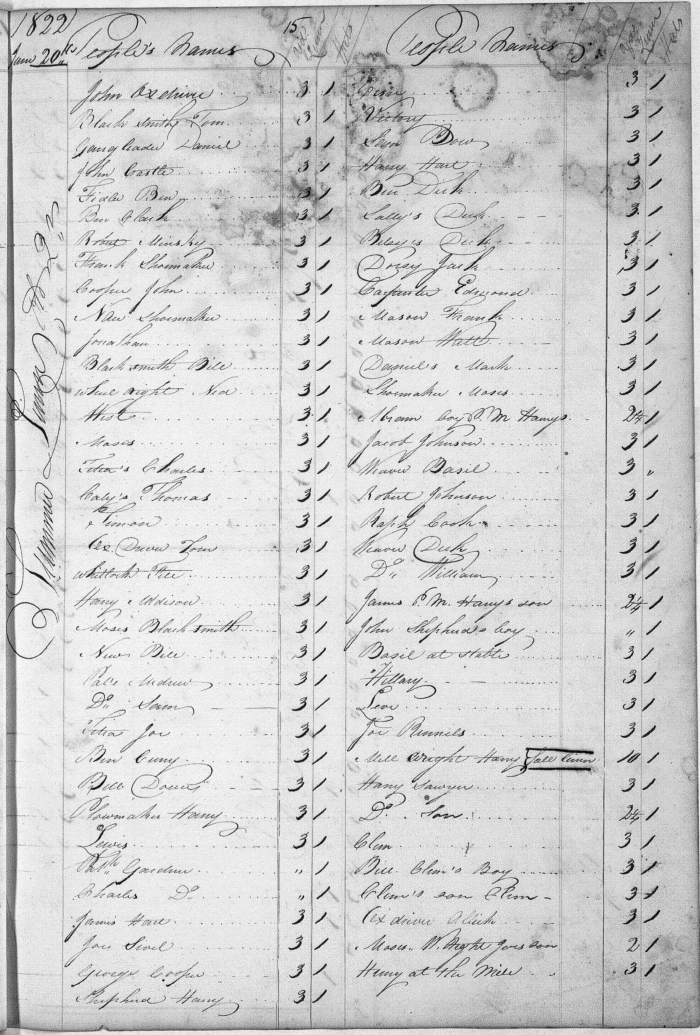 1822
15
Jan 20th People's Names Yds Linen Hats
People Names Yds Linen Hats
Summer Linen
John Oxdriver 3 1
Black smith Tom 3 1
Gangleader Daniel 3 1
John Castle 3 1
Fidler Ben 3 1
Ben Clark 3 1
Robert Minsky 3 1
Frank Shoemaker 3 1
Cooper John 3 1
Nace Shoemaker 3 1
Jonathan 3 1
Black smith Bill 3 1
wheel wright Ned 3 1
3 1
Moses 3 1
Charles 3 1
Thomas 3 1
Simon 3 1
Ox Driver Tom 3 1
3 1
Harry Addison 3 1
Moses Black smith 3 1
New Bill 3 1
Andrew 3 1
Do Sam 3 1
Joe 3 1
Ben Cuny 3 1
Bill 3 1
Plowmaker Harry 3 1
Lewis 3 1
Gardner " 1
Charles Do " 1
James Hall 3 1
Joe 3 1
George Cooper 3 1
Shepherd Harry 3 1
3 1
Victory 3 1
Sam Bow 3 1
Harry Hall 3 1
Ben Dick 3 1
Sally's Dick 3 1
Dick 3 1
Jack 3 1
Carpenter Edmond 3 1
Mason Frank 3 1
Mason Watt 3 1
Daniel's Mark 3 1
Shoemaker Moses 3 1
Abram boy P. M Harry's 2¼ 1
Jacob Johnson 3 1
Weaver Basil 3 "
Robert Johnson 3 1
Raph Cook 3 1
Weaver Dick 3 1
Do William 3 1
James P. M. Harry's son 2¼ 1
John Shepherd's boy " 1
Basil at stable 3 1
Hillary 3 1
Levi 3 1
Joe Runnils 3 1
Mill wright Harry fall linen 10 1
Harry Sawyer 3 1
Do Son 2¼ 1
Clem 3 1
Bill Clem's Boy 3 1
Clem's son Clem 3 1
Ox driver Alick 3 1
Moses, W. Wright Joe's son 2 1
Henry at the Mill 3 1